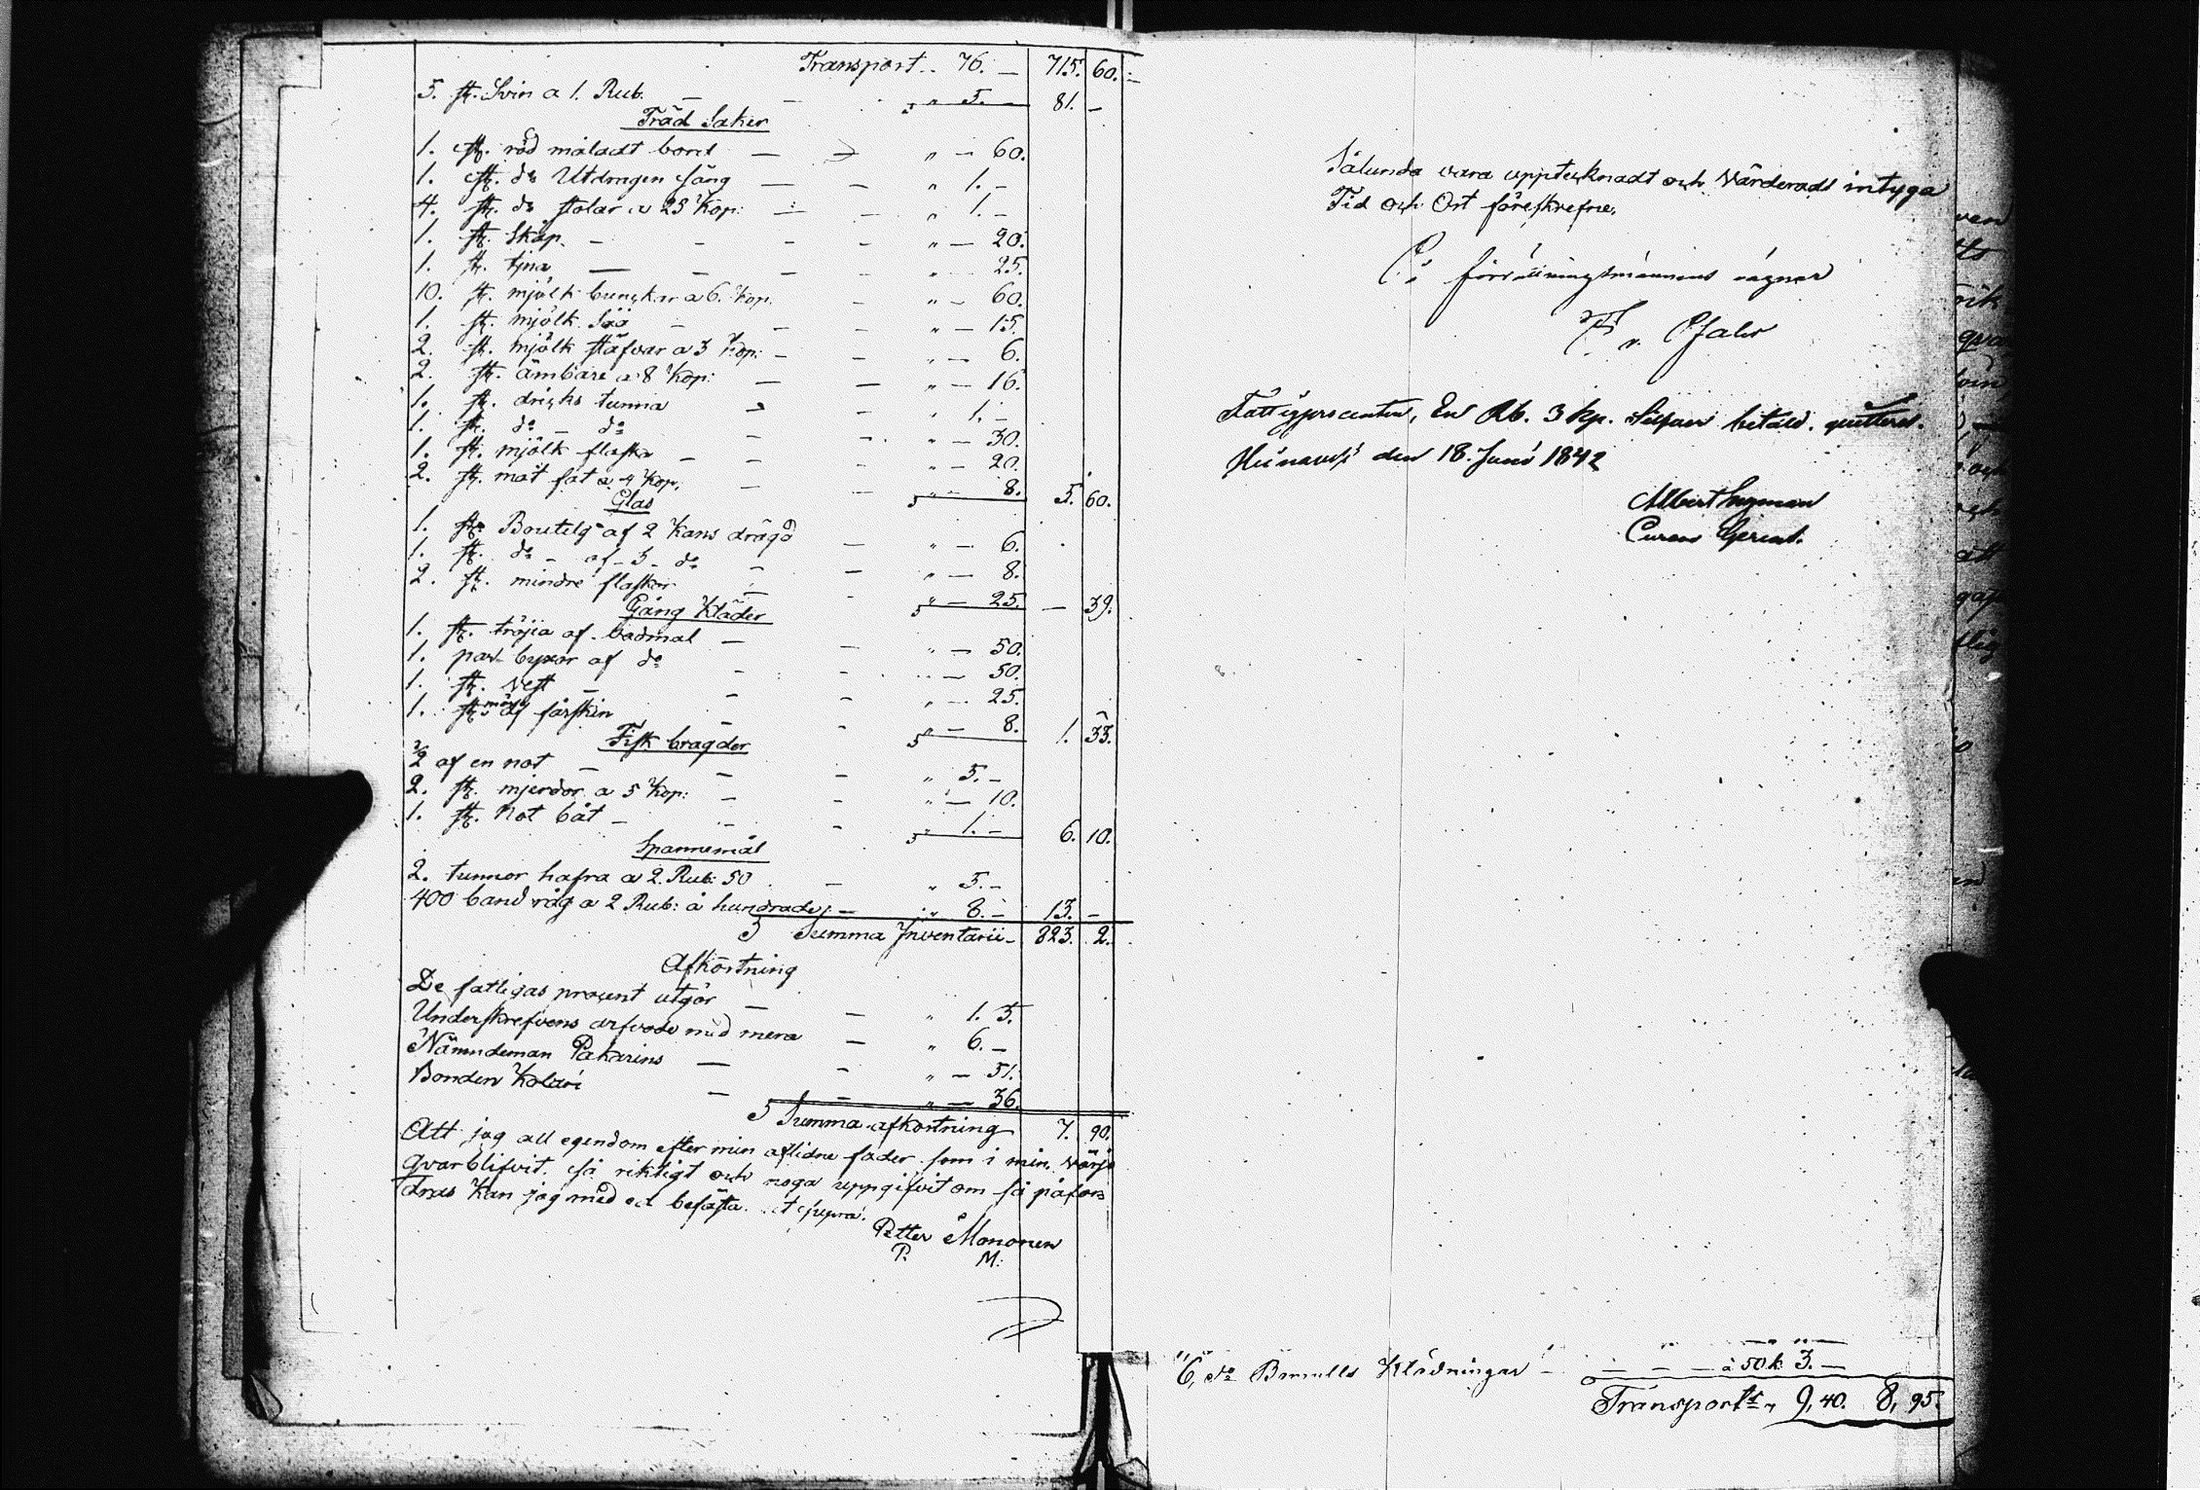 Transport.. 76. — 715. 60.
5. st. Svin a 1. Rub. — — „ 5. — 81. —
Träd Saker
1. st. röd måladt bord — — „ — 60.
1. st. do Utdragen säng — — „ 1. —
4. st. do stolar a 25 Kop: — — „ 1. —
1. st. Skåp. — — — — „ — 20.
1. st. tjna — — — — „ — 25.
10. st. mjölk bunckar a 6. Kop. — „ — 60.
1. st. mjölk Såå — — — „ — 15.
2. st. mjölk stäfvar a 3 Kop: — — „ — 6.
2. st. ämbare a 8 Kop: — — „ — 16.
1. st. dricks tunna — — „ 1. —
1. st. do — do — — „ — 30.
1. st. mjölk flaska — — — „ — 20.
2. st. mat fat a 4 Kop. — — „ — 8. 5. 60.
Glas
1. st. Boutelg af 2 Kans drägd — „ — 6.
1. st. do — af — 3 — do — — „ — 8.
2. st. mindre flaskor — — „ — 25. — 39.
Gång Kläder
1. st. tröjia af vadmal — — „ — 50.
1. par byxor af do — — „ — 50.
1. st. Vest — — — „ — 25.
1. st. af fårskin — — „ — 8. 1. 33.
Fisk bragder
1/2 af en not — — — „ 5. —
2. st. mjerdor a 5 Kop: — — „ — 10.
1. st. Not båt — — — „ 1. — 6. 10.
Spannemål
2. tunnor hafra a 2. Rub: 50 — „ 5. —
400 band råg a 2 Rub: å hundrade — „ 8. — 13. —
Summa Inventarii — 823. 2.
Afkortning
De fattigas procent utgör — — „ 1. 3.
Underskrefvens arfvode med mera — „ 6. —
Nämndeman Pakarins — — „ — 51.
Bonden Kolari — — „ — 36.
Summa afkortning 7. 90.
Att jag all egendom efter min aflidne fader som i min värjo
qvarblifvit, så riktigt och noga uppgifvit om så påfor-
dras Kan jag med ed befästa. ut supra.
Petter Mononen
P. M.
Sålunda vara upptecknadt och Värderadt intyga
Tid och Ort föreskrefne.
På förrättningsmannens vägnar
Fattigprocenten, En Rb. 3 kp. Silfver betald. qvitteras.
den 18. Juni 1842
Albert Ingman
6, do Bomulls Klädningar — — — — à 50 k. 3. —
Transport „ 9, 40. 8, 95.